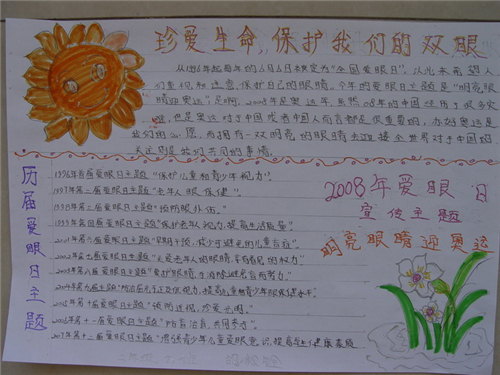 珍爱生命,保护我们的双眼
从1996年起每年的6月6日被定为"全国爱眼日",从此来希望人
们重视和注意,保护自己的眼睛。今年的爱眼日主题是"明亮眼
睛迎奥运",是啊,2008年是奥运年,虽然08年的中国经历了很多灾
难,但是奥运对于中国或者中国人而言都是很重要的,办好奥运是
我们的心愿,而拥有一双明亮的眼睛去迎接全世界对于中国的
关注则是我们共同的事情。
历届爱眼日主题
1996年首届爱眼日主题"保护儿童和青少年视力"。
1997年第二届爱眼日主题"老年人眼保健"。
1998年第三届爱眼日主题"预防眼外伤"。
1999年第四届爱眼日主题"保护老年人视力,提高生活质量"
2001年第六届爱眼日主题"早期干预,减少可避免的儿童盲症"。
2002年第七届爱眼日主题"关爱老年人的眼睛,享有看见的权力"
2003年第八届爱眼日主题"爱护眼睛,为消除避免盲而努力"。
2004年第九届爱眼日主题"防治屈光不正及低视力,提高儿童和青少年眼保健水平"
2005年第十届爱眼日主题"预防近视,珍爱光明。
2006年第十一届爱眼日主题"防盲治盲,共同参与"。
2007年第十二届爱眼日主题"增强青少年儿童爱眼意识,提高年轻健康素质
2008年爱眼日
宣传主题
明亮眼睛迎奥运